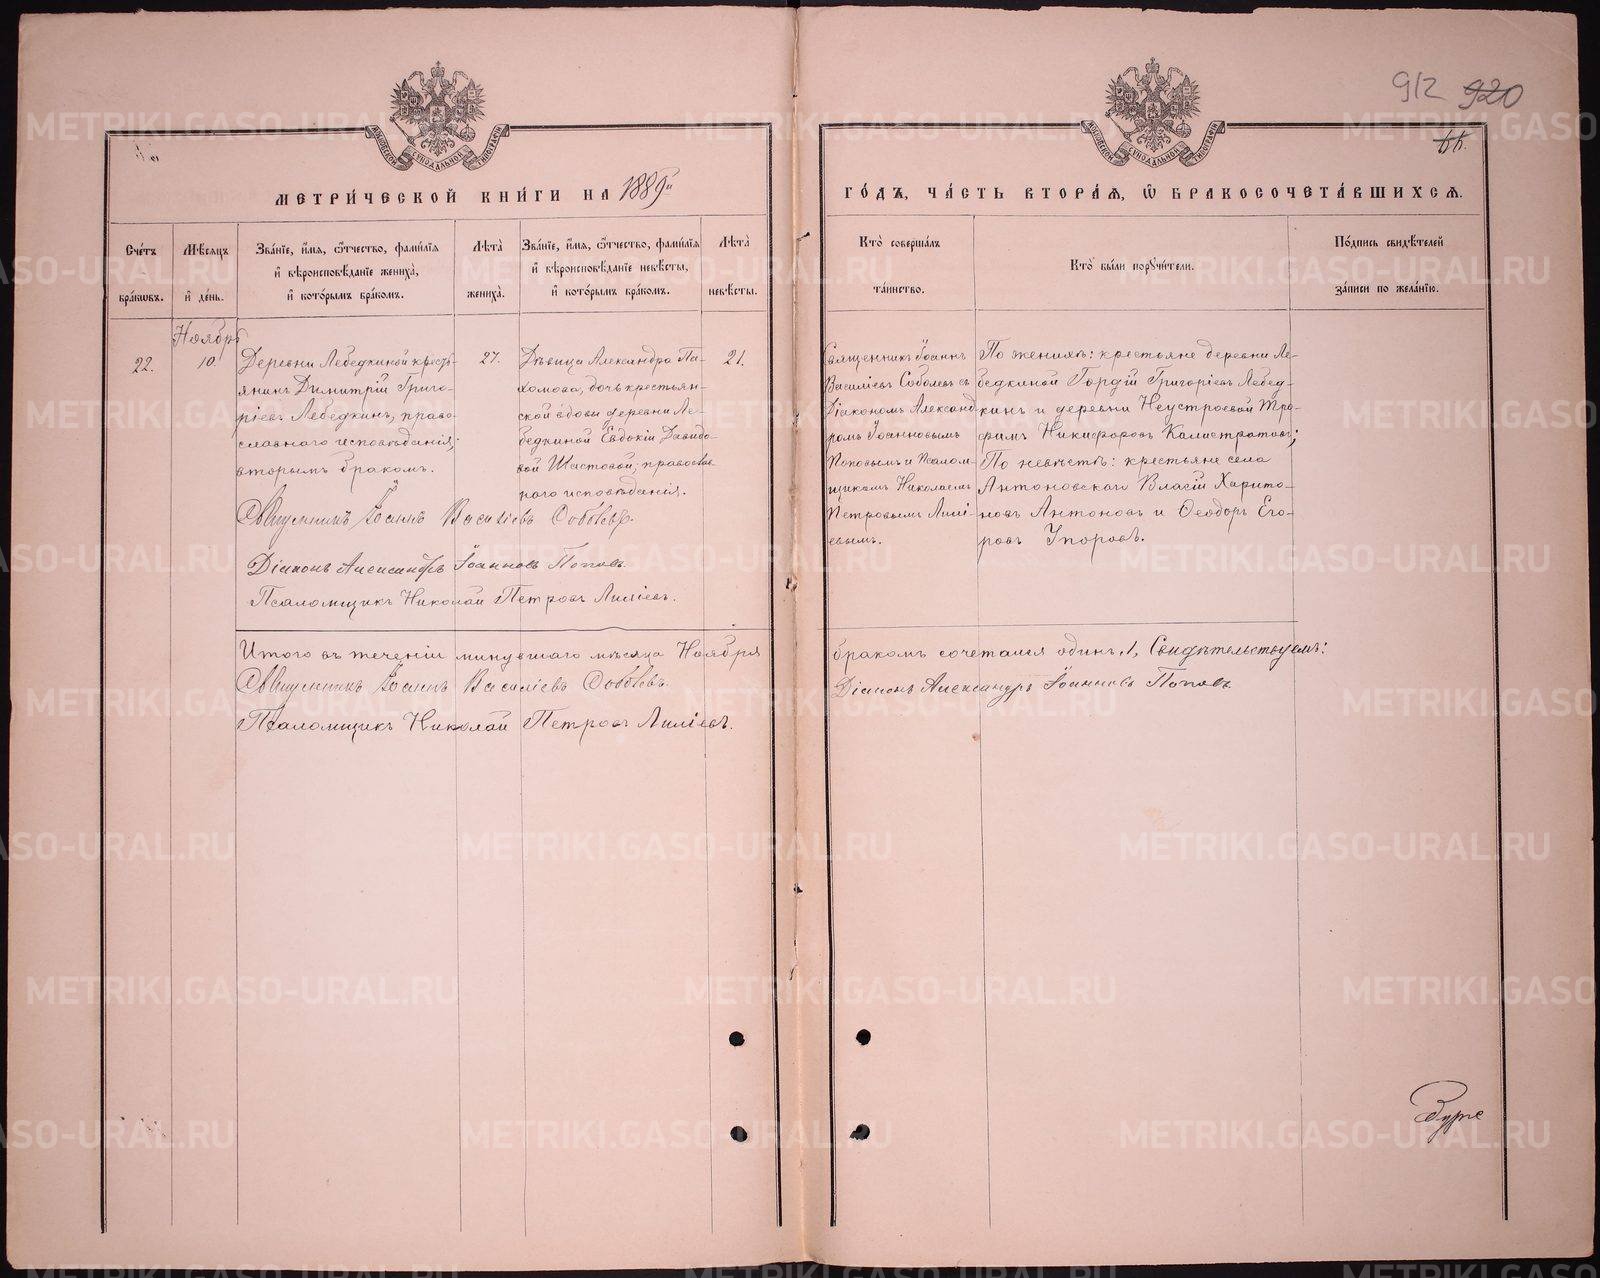 912 920
МОСКОВСКОЙ СѴНОДАЛЬНОЙ ТИПОГРАФІИ
МОСКОВСКОЙ СѴНОДАЛЬНОЙ ТИПОГРАФІИ
МЕТРИ́ЧЕСКОЙ КНИ́ГИ НА 1889й
ГО́ДЪ, ЧА́СТЬ ВТОРА́Я, Ѡ БРАКОСОЧЕТА́ВШИХСЯ.
Сче́тъ бра́кѡвъ.
Мѣ́сяцъ и де́нь.
Зва́нїе, и́мя, ѻ҆́тчество, фами́лїя
и вѣроисповѣ́данїе жениха̀,
и кото́рымъ бра́комъ.
Лѣ́та жениха̀.
Зва́нїе, и́мя, ѻ҆́тчество, фами́лїя
и вѣроисповѣ́данїе невѣ́сты,
и кото́рымъ бра́комъ.
Лѣ́та невѣ́сты.
Кто̀ соверша́лъ та́инство.
Кто̀ бы́ли порꙋчи́тели.
По́дпись свидѣ́телей за́писи по жела́нїю.
22.
Ноябрь
10.
Деревни Лебедкиной кресть-
янинъ Димитрій Григо-
ріевъ Лебедкинъ, право-
славнаго исповѣданія;
вторымъ бракомъ.
27.
Дѣвица Александра Па-
хомова, дочь крестьян-
ской вдовы деревни Ле-
бедкиной Евдокіи Давидо-
вой Шастовой; православ
наго исповѣданія.
21.
Священникъ Іоаннъ
Василіевъ Соболевъ съ
Діакономъ Александ
ромъ Іоанновымъ
Поповымъ и Псалом-
щикомъ Николаемъ
Петровымъ Лилі-
евымъ.
По женихѣ: крестьяне деревни Ле-
бедкиной Гордій Григоріевъ Лебед-
кинъ и деревни Неустроевой Тро-
фимъ Никифоровъ Калистратовъ;
По невѣстѣ: крестьяне села
Антоновскаго Власій Харито-
новъ Антоновъ и Ѳеодоръ Его-
ровъ Упоровъ.
Священникъ Іоаннъ Василіевъ Соболевъ.
Діаконъ Александръ Іоанновъ Поповъ
Псаломщикъ Николай Петровъ Лиліевъ.
Итого въ теченіи минувшаго мѣсяца Ноября
бракомъ сочетался одинъ, 1, Свидѣтельствуемъ:
Священникъ Іоаннъ Василіевъ Соболевъ.
Діаконъ Александръ Іоанновъ Поповъ.
Псаломщикъ Николай Петровъ Лиліевъ.
METRIKI.GASO-URAL.RU